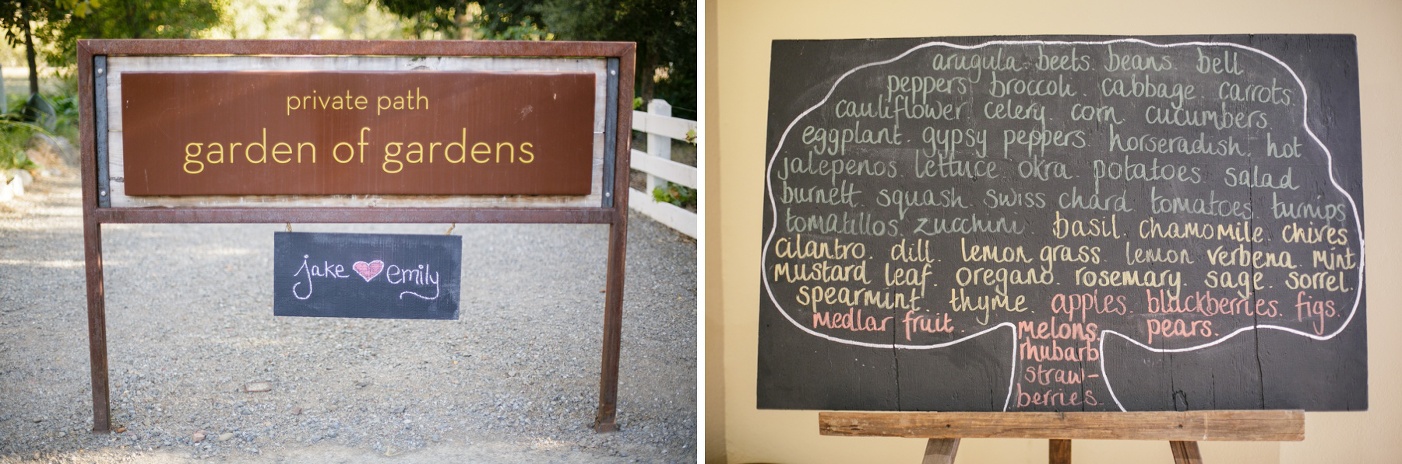 private path
garden of gardens
jake emily
arugula. beets. beans. bell
peppers. broccoli. cabbage. carrots.
cauliflower. celery. corn. cucumbers.
eggplant. gypsy peppers. horseradish. hot
jalepenos. lettuce. okra. potatoes. salad
burnett. squash. swiss chard. tomatoes. turnips
tomatillos. zucchini. basil. chamomile. chives.
cilantro. dill. lemon grass. lemon verbena. mint.
mustard leaf. oregano. rosemary. sage. sorrel.
spearmint. thyme. apples. blackberries. figs.
medlar fruit. melons. pears.
rhubarb
straw-
berries.